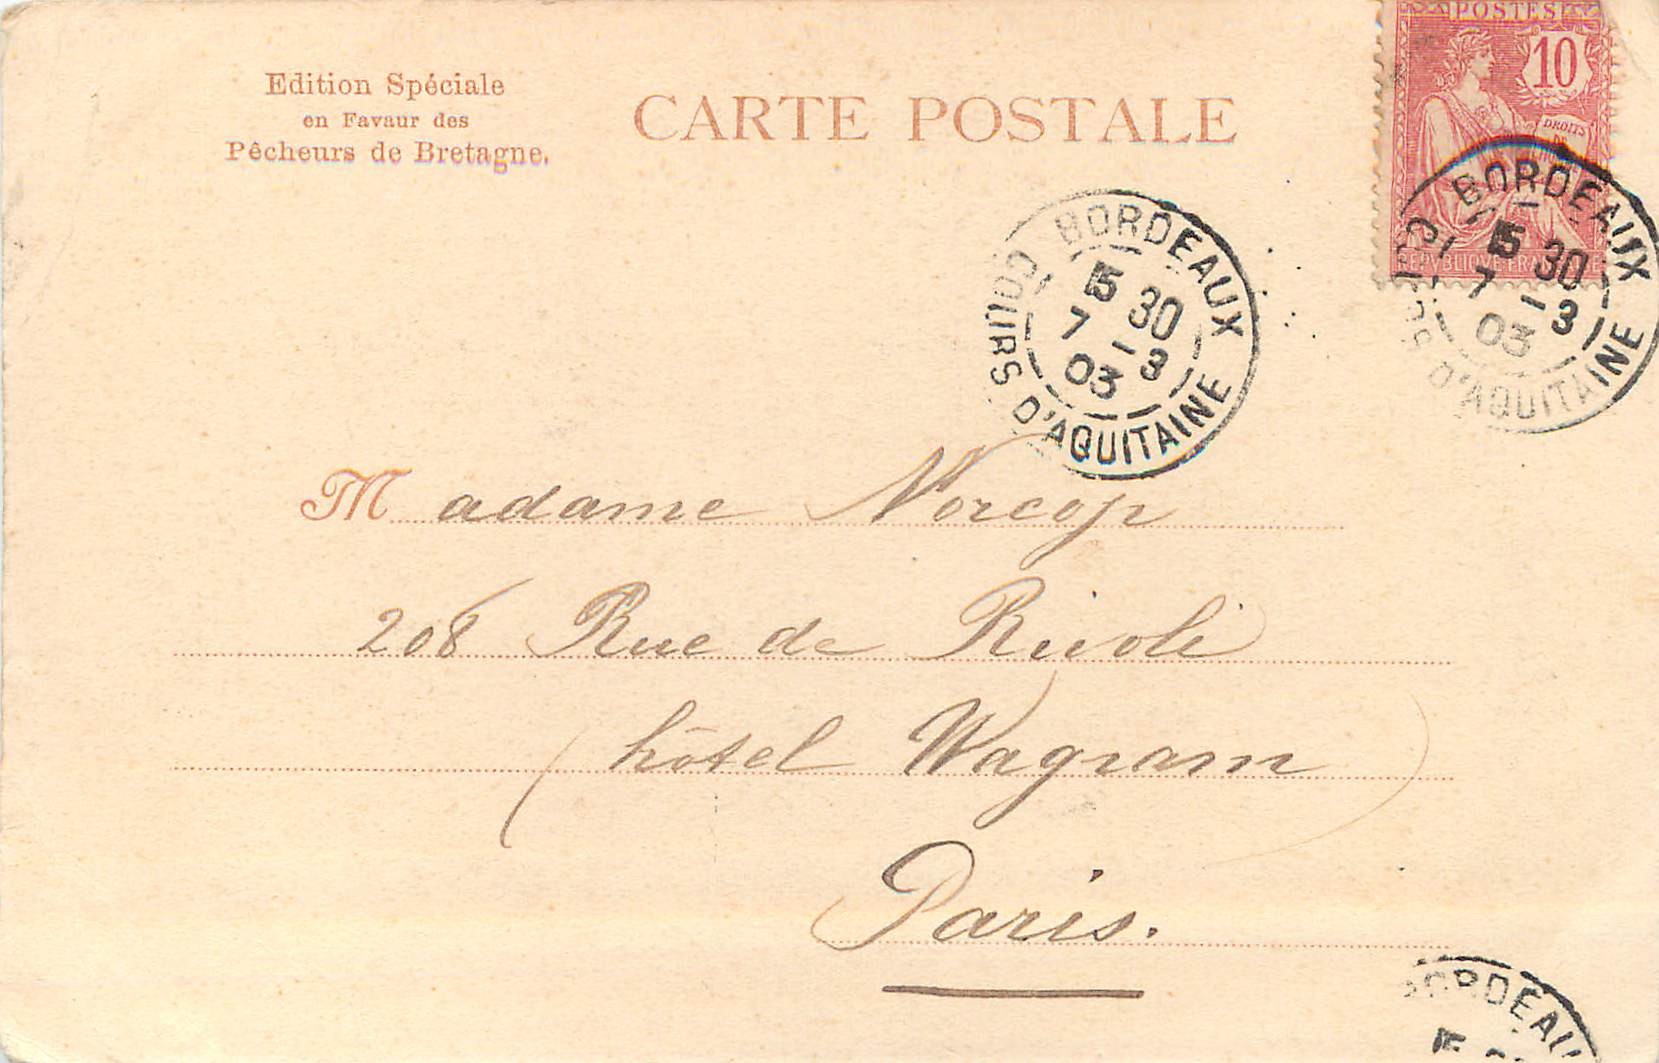 Edition Spéciale
en Favaur des
Pêcheurs de Bretagne.
CARTE POSTALE
POSTES
10
DROITS
REPUBLIQUE FRANCAISE
BORDEAUX
15 30
7 - 3
03
COURS D'AQUITAINE
BORDEAUX
15 30
7 - 3
03
COURS D'AQUITAINE
Madame Norcop
208 Rue de Rivoli
(hôtel Wagram)
Paris.
BORDEAU